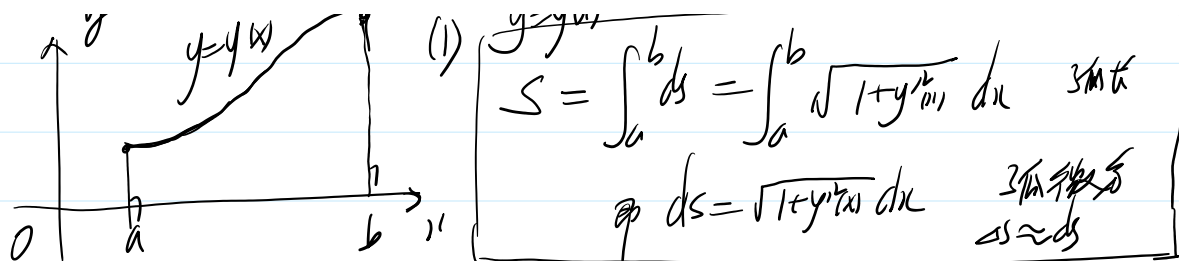 y
y=y(x)
O a b x
(1) y=y(x)
S = ∫_a^b ds = ∫_a^b √(1+y'²(x)) dx 弧长
即 ds = √(1+y'²(x)) dx 弧微分
Δs≈ds